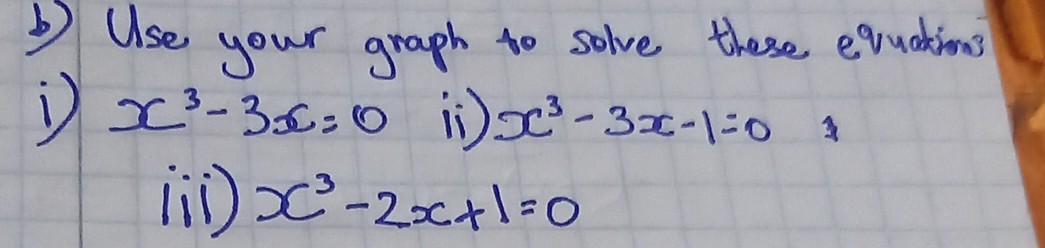 b) Use your graph to solve these equations
i) x³-3x=0 ii) x³-3x-1=0
iii) x³-2x+1=0